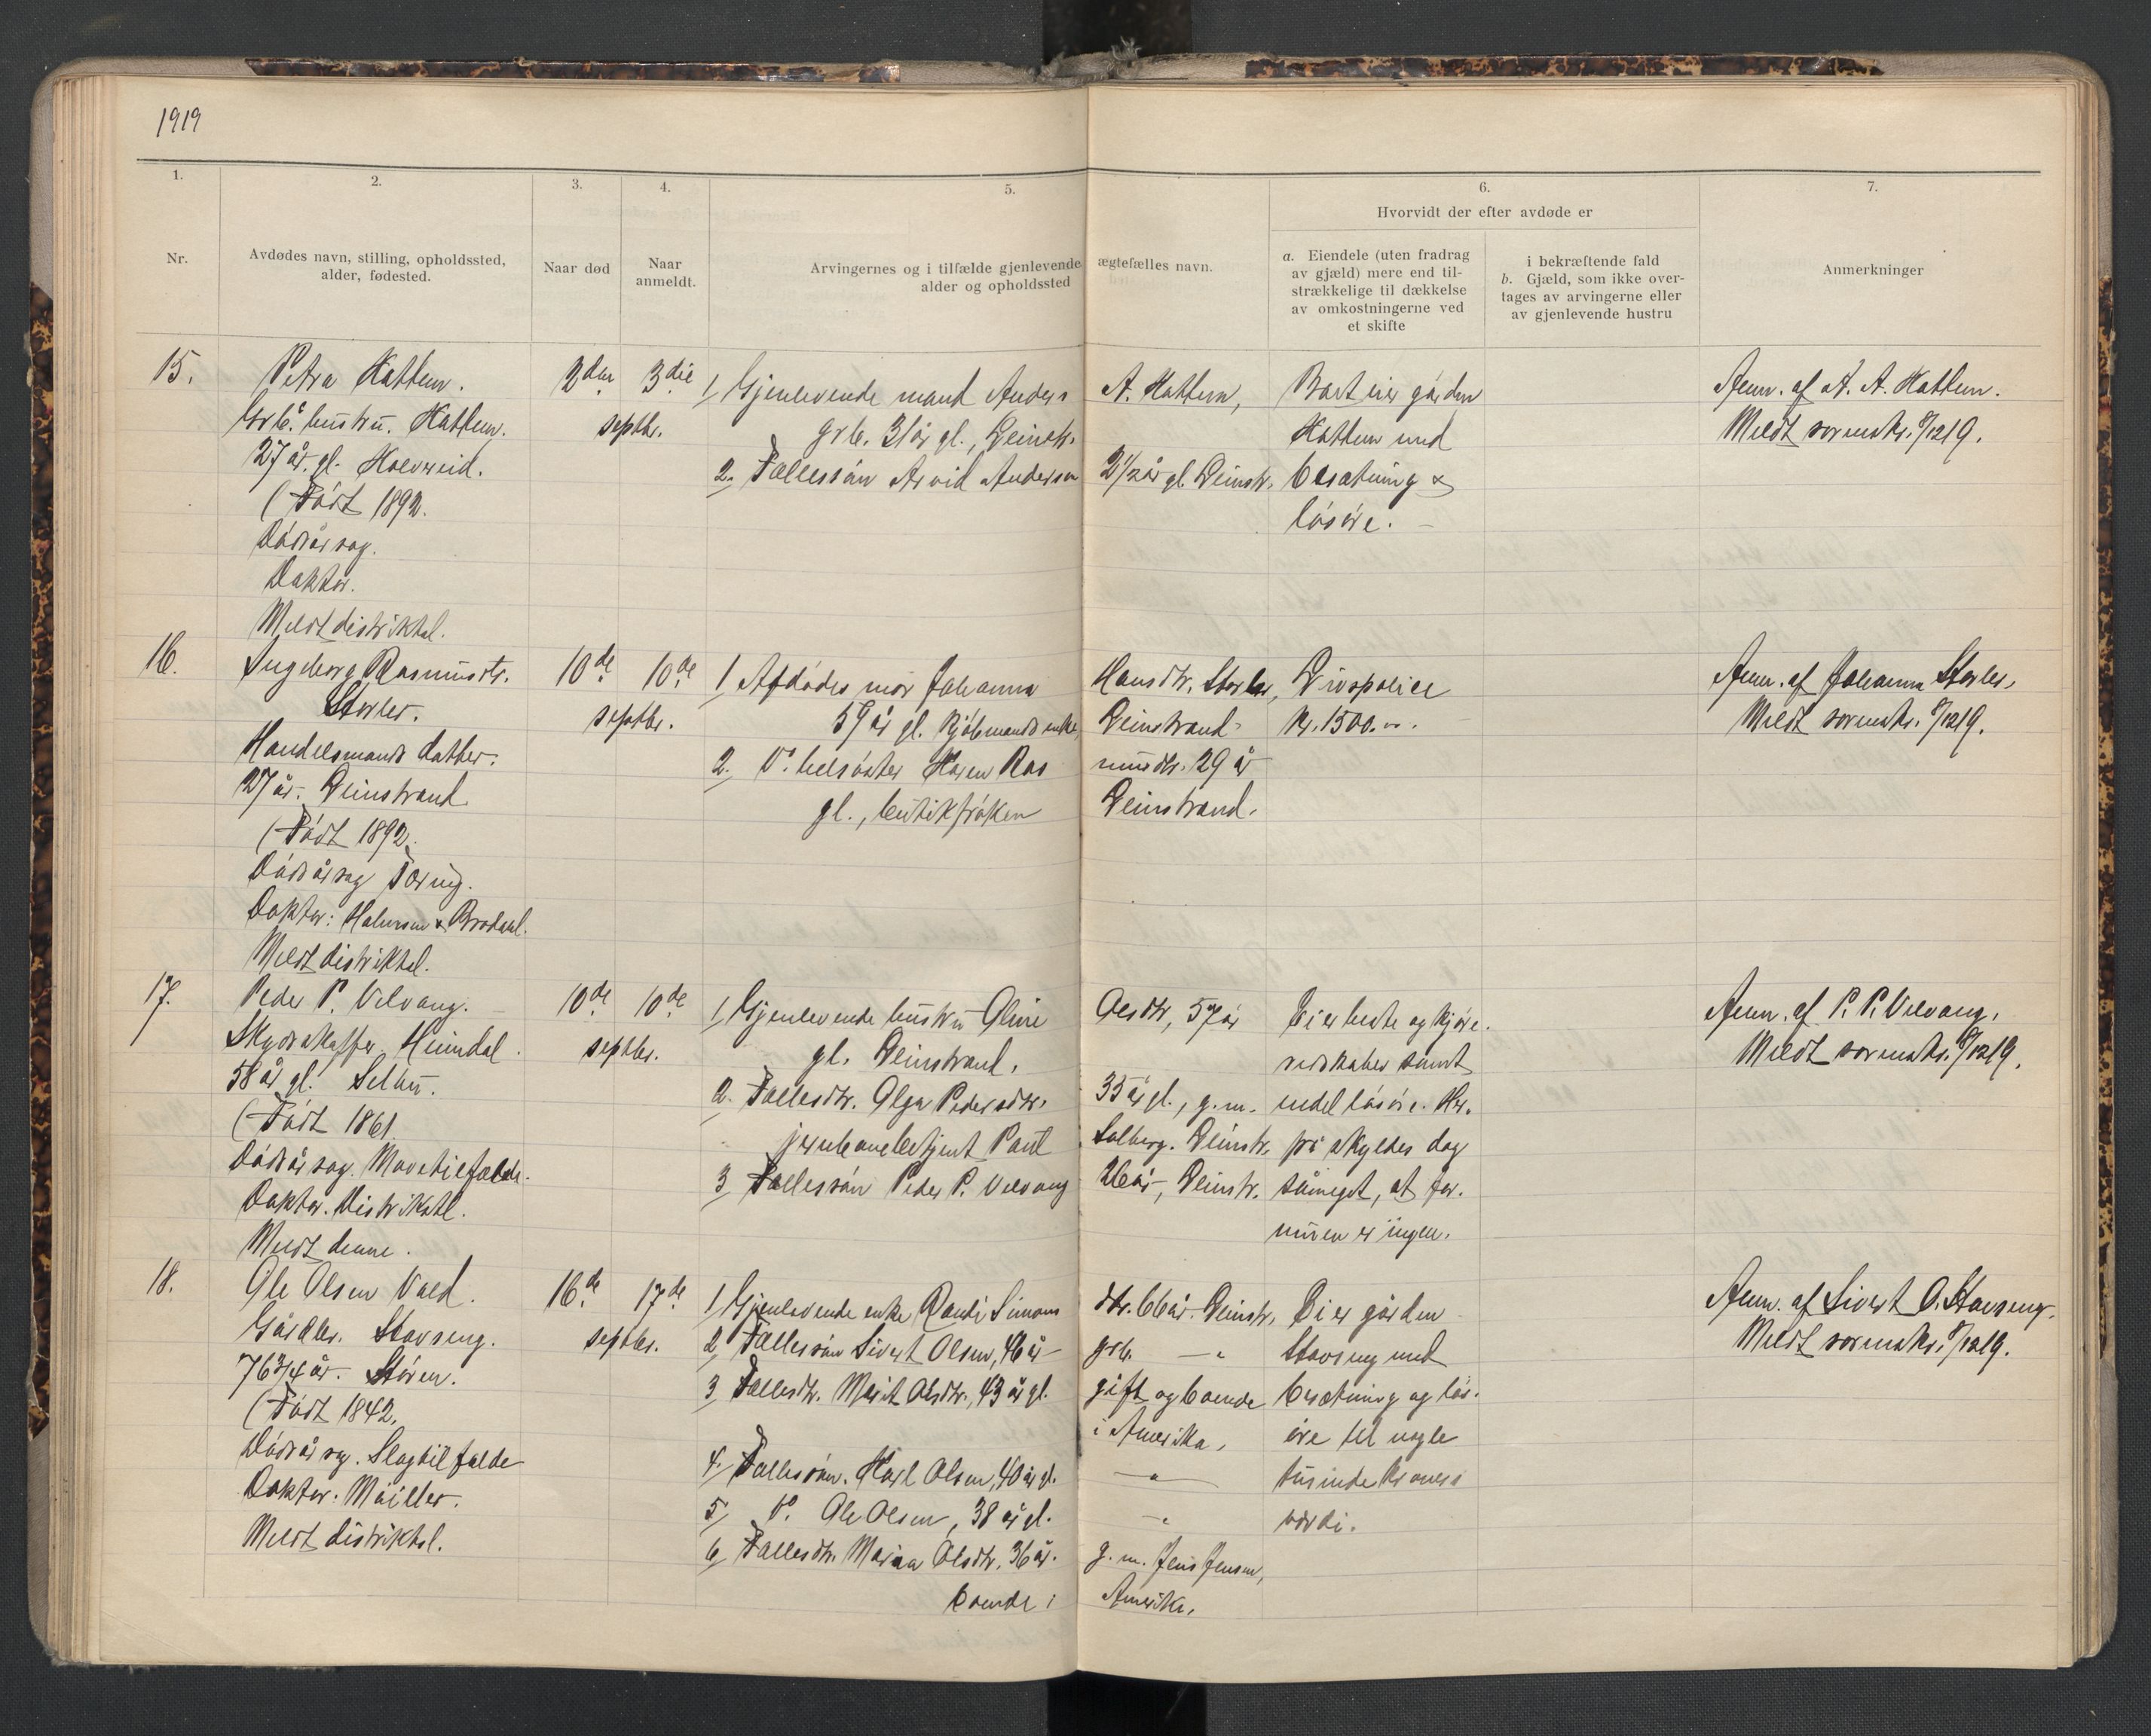 1919
1.
2.
3.
4.
5.
6.
7.
Hvorvidt der efter avdøde er
Nr.
Avdødes navn, stilling, opholdssted,
alder, fødested.
Naar død
Naar
anmeldt.
Arvingernes og i tilfælde gjenlevende ægtefælles navn.
alder og opholdssted
a. Eiendele (uten fradrag
av gjæld) mere end til-
strækkelige til dækkelse
av omkostningerne ved
et skifte
i bekræftende fald
b. Gjæld, som ikke over-
tages av arvingerne eller
av gjenlevende hustru
Anmerkninger
15.
Petra Hattem.
Grb. hustru. Hattem.
27 år. gl.
(Født 1892.
Dødsårsag.
Doktor.
Meldt distriktsl.
2den
3die
septbr.
1, Gjenlevende mand Anders A. Hattem,
grb. 31 år gl., Leinstr.
2, Fællessøn Arvid Andersen 2 1/2 år gl. Leinstr.
Boet eier gården
Hattem med
besætning &
løsøre.
Anm. af A. A. Hattem.
Meldt sorenskr. 9/12 19.
16.
Ingeborg Rasmusdtr.
Størler.
Handelsmands datter.
27 år. Leinstrand
(Født 1892.
Dødsårsag Tæring.
Doktor: Halvorsen & Brodahl.
Meldt distriktsl.
10de
10de
septbr.
1, Afdødes mor Johanna Hansdtr. Størler,
59 år gl. kjøbmands enke, Leinstrand.
2. Do. helsøster Karen Rasmusdtr. 29 år
gl., butikfrøken Leinstrand.
Livspolice
kr. 1500.
Anm. af Johanna Størler,
Meldt sorenskr. 9/12 19.
17.
Peder P. Velvang.
Skydsskaffer. Heimdal.
58 år gl. Selbu.
(Født 1861.
Dødsårsag. Mavetilfælde.
Doktor. Distriktsl.
Meldt denne.
10de
10de
septbr.
1, Gjenlevende hustru Oline Olsdtr, 57 år
gl. Leinstrand.
2. Fællesdtr. Olga Pedersdtr. 35 år gl., g. m.
jernbanebetjent Paul Solberg. Leinstr.
3, Fællessøn Peder P. Velvang 26 år, Leinstr.
Eier heste og kjøre-
redskaber samt
endel løsøre. Her-
på skyldes dog
såmeget, at for-
muen er ingen.
Anm. af P. P. Velvang,
Meldt sorenskr. 9/12 19.
18.
Ole Olsen Vold.
Gårdbr. Stavseng.
76 3/4 år. Støren.
(Født 1842.
Dødsårsag. Slagtilfælde
Doktor: Møller.
Meldt distriktsl.
16de
17de
septbr.
1, Gjenlevende enke Randi Simonsdtr. 66 år. Leinstr.
2, Fællessøn Sivert Olsen, 46 år grb. —"—
3, Fællesdtr. Marit Olsdtr., 43 år gl. gift og boende
i Amerika.
4, Fællessøn. Karl Olsen, 40 år gl. —"—
5, Do. Ole Olsen, 38 år gl. —"—
6, Fællesdtr. Maria Olsdtr. 36 år. g. m. Jens Jensen,
boende i Amerika.
Eier gården
Stavseng med
besætning og løs-
øre til nogle
tusinde kroners
værdi.
Anm. af Sivert O. Stavseng.
Meldt sorenskr. 9/12 19.